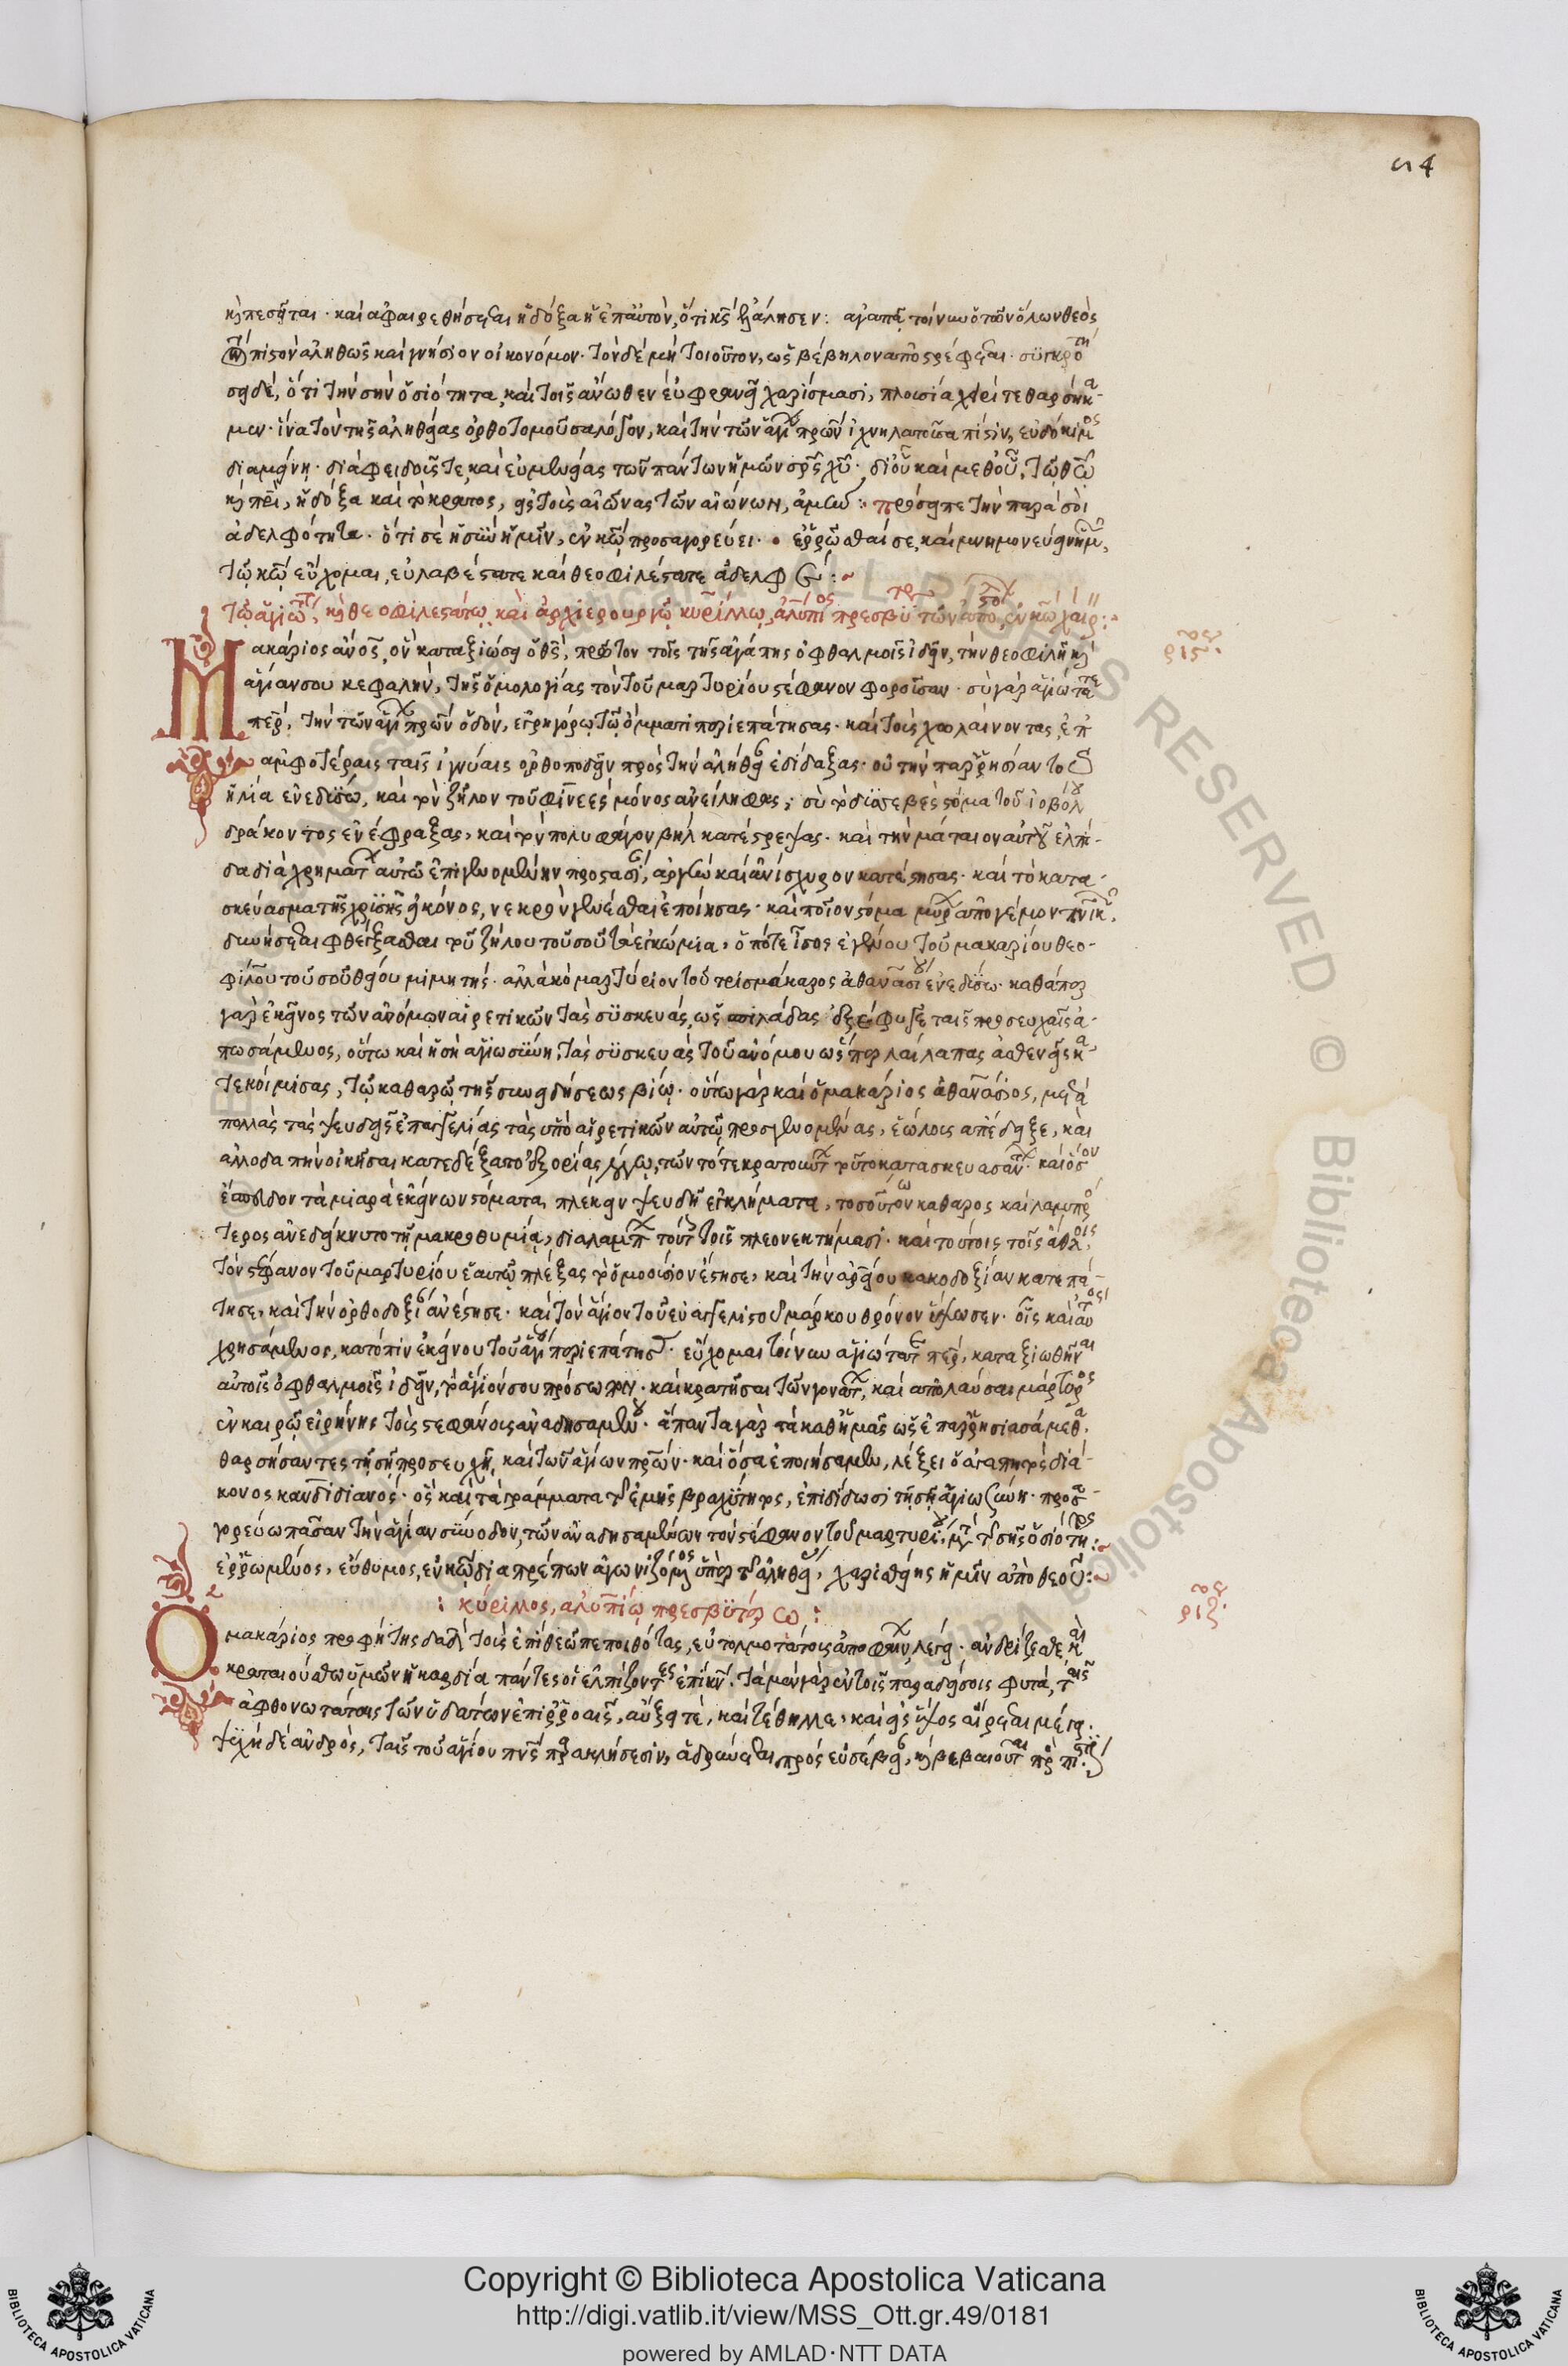 κ πεσεῖται · καὶ ἀφαιρεθήσεται ἡ δόξα ἡ ἐπ αὐτὸν, ὅτι κς ἐλάλησεν : ἀγαπᾷ τοίνυν ὁ τῶν ὅλων θεὸς
πιστὸν ἀληθῶς καὶ γνήσιον οἰκονόμον · τὸν δὲ μὴ τοιοῦτον, ὡς βέβηλον ἀποστρέφεται ·
δὲ, ὅτι τὴν σὴν ὁσιότητα, καὶ τοῖς ἄνωθεν εὐφρανεῖ χαρίσμασι, πλουσίᾳ χειρὶ
μεν · ἵνα τὸν τῆς ἀληθείας ὀρθοτομοῦσα λόγον, καὶ τὴν τῶν ἁγί πρων ἰχνηλατοῦσα πίστιν, εὐδόκιμος
διαμείνῃ · διὰ φειδοῦς τε, καὶ εὐμενείας τοῦ πάντων ἡμῶν σρς χυ · δι οὗ καὶ μεθ οὗ, τῷ θω
κ πρι, ἡ δόξα καὶ τὸ κράτος, εἰς τοὺς αἰῶνας τῶν αἰώνων, ἀμήν : πρόσειπε τὴν παρὰ σοὶ
ἀδελφότητα · ὅτι σὲ ἡ σὺν ἡμῖν, ἐν κω προσαγορεύει · ἐρρῶσθαί σε, καὶ μνημονεύειν ἡμ,
τῷ κω εὔχομαι, εὐλαβέστατε καὶ θεοφιλέστατε ἀδελφέ :~
Τῷ ἁγιωτ, κ θεοφιλεστάτῳ καὶ ἀρχιερουργῷ κυρίλλῳ, ἀλύπιος πρεσβύτ τῶν ἀποστολ, ἐν κω χαίρ :
Μακάριος ἄνος, ὃν καταξιώσῃ ὁ θς, πρῶτον τοῖς τῆς ἀγάπης ὀφθαλμοῖς ἰδεῖν, τὴν θεοφιλῆ κ
ἁγίαν σου κεφαλὴν, τῆς ὁμολογίας τὸν τοῦ μαρτυρίου στέφανον φοροῦσαν · σὺ γὰρ ἁγιώτατε
περ, τὴν τῶν ἁγί πρων ὁδὸν, ἐγρηγόρῳ τῷ ὄμματι περιεπάτησας · καὶ τοὺς χωλαίνοντας, ἐπ
ἀμφοτέραις ταῖς ἰγνύαις ὀρθοποδεῖν πρὸς τὴν ἀλήθει ἐδίδαξας · σὺ τὴν παρρησίαν τοῦ
ἡλία ἐνεδύσω, καὶ τὸν ζῆλον τοῦ φινεὲς μόνος ἀνείληφας ; σὺ τὸ δυσσεβὲς στόμα τοῦ ἰοβόλου
δράκοντος ἐνέφραξας, καὶ τὸν πολυφάγον βὴλ κατέστρεψας · καὶ τὴν μάταιον αὐτοῦ ἐλπί-
δα διὰ χρημάτ αὐτῷ ἐπιγενομένην προστασί, ἀργὴν καὶ ἀνίσχυρον κατέστησας · καὶ τὸ κατα-
σκεύασμα τῆς χρυσῆς εἰκόνος, νεκρὸν γενέσθαι ἐποίησας · καὶ ποῖον στόμα μύρ ἀπογέμον πνικ,
δυνήσεται φθέγξασθαι τοῦ ζήλου τοῦ σοῦ τὰ ἐγκώμια, ὁπότε ἶσος ἐγένου τοῦ μακαρίου θεο-
φίλου τοῦ σοῦ θείου μιμητής · ἀλλὰ κὸ μαρτύριον τοῦ τρισμάκαρος ἀθανασίου ἐνεδύσω · καθάπερ
γὰρ ἐκεῖνος τῶν ἀνόμων αἱρετικῶν τὰς συσκευάς, ὡς σπιλάδας ἐξέφυγε, ταῖς προσευχαῖς ἀ-
πωσάμενος, οὕτω καὶ ἡ σὴ ἁγιωσύνη, τὰς συσκευὰς τοῦ ἀνόμου ὥσπερ λαίλαπας ἀσθενεῖς κα-
τεκοίμισας, τῷ καθαρῷ τῆς συνειδήσεως βίῳ · οὕτω γὰρ καὶ ὁ μακάριος ἀθανάσιος, μετὰ
πολλὰς τὰς ψευδεῖς ἐπαγγελίας τὰς ὑπὸ αἱρετικῶν αὐτῷ προσγενομένας, ἑώλους ἀπέδειξε, καὶ
ἀλλοδαπὴν οἰκῆσαι κατεδέξατο ἐξορίας λόγῳ, τῶν τότε κρατούντ τοῦτο κατασκευασάντ · καὶ ὅσον
ἐδίδον τὰ μιαρὰ ἐκείνων στόματα, πλέκειν ψευδῆ ἐγκλήματα, τοσοῦτον καθαρὸς καὶ λαμπρό-
τερος ἀνεδείκνυτο τῇ μακροθυμίᾳ, διαλάμπ τούτ τοῖς πλεονεκτήμασι · καὶ τούτοις τοῖς ἄθλοις,
τὸν στέφανον τοῦ μαρτυρίου ἑαυτῷ πλέξας τὸ ὁμοούσιον ἔστησε, καὶ τὴν ἀρείου κακοδοξίαν κατεπά-
τησε, καὶ τὴν ὀρθοδοξί ἀνέστησε · καὶ τὸν ἅγιον τοῦ εὐαγγελιστοῦ μάρκου θρόνον ὕψωσεν · οἷς καὶ αὐτὸς
χρησάμενος, κατόπιν ἐκείνου τοῦ ἁγίου περιεπάτησ · εὔχομαι τοίνυν ἁγιώτατε περ, καταξιωθῆναι
αὐτοῖς ὀφθαλμοῖς ἰδεῖν, τὸ ἅγιόν σου πρόσωπον · καὶ κρατῆσαι τῶν γονάτ, καὶ ἀπολαῦσαι μάρτυρος
ἐν καιρῷ εἰρήνης τοὺς στεφάνους ἀναδησαμένου · ἅπαντα γὰρ τὰ καθ ἡμᾶς ὡς ἐπαρρησιασάμεθα,
θαρσήσαντες τῇ σῇ προσευχῇ, καὶ τῶν ἁγίων πρων · καὶ ὅσα ἐποιήσαμεν, λέξει ὁ ἀγαπητὸς διά-
κονος κανδιδιανός · ὃς καὶ τὰ γράμματα τ ἐμῆς βραχύτητος, ἐπιδίδωσι τῇ σῇ ἁγιωσύνῃ · προσα-
γορεύω πᾶσαν τὴν ἁγίαν σύνοδον, τῶν ἀναδησαμένων τὸν στέφανον τοῦ μαρτυρίου, μετ τ σῆς ὁσιότητος :
ἐρρωμένος, εὔθυμος, ἐν κω διαπρέπων ἀγωνιζόμενος ὑπὲρ τ ἀληθεί, χαρισθείης ἡμῖν ἀπὸ θεοῦ :~
: κύριλλος, ἀλυπίῳ πρεσβυτέρῳ :
Ὁ μακάριος προφήτης δαδ τοὺς ἐπὶ θεῷ πεποιθότας, εὐτολμοτάτους ἀποφαίνων λέγει · ἀνδρίζεσθε καὶ
κραταιούσθω ὑμῶν ἡ καρδία πάντες οἱ ἐλπίζοντες ἐπὶ κν · τὰ μὲν γὰρ ἐν τοῖς παραδείσοις φυτὰ, ταῖς
ἀφθονωτάταις τῶν ὑδάτων ἐπιρροαῖς, αὔξει τὲ, καὶ τέθηλλε, καὶ εἰς ὕψος αἴρεται μέγα ·
ψυχὴ δὲ ἀνδρὸς, ταῖς τοῦ ἁγίου πνς παρακλήσεσιν, ἁδρύνεται πρὸς εὐσέβει, κ βεβαιοῦται πρ πίστιν
Copyright © Biblioteca Apostolica Vaticana
http://digi.vatlib.it/view/MSS_Ott.gr.49/0181
powered by AMLAD·NTT DATA
BIBLIOTECA APOSTOLICA VATICANA
BIBLIOTECA APOSTOLICA VATICANA